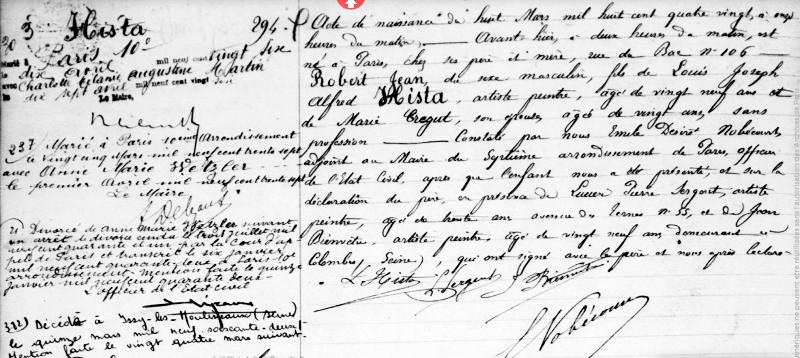 3 Hista 294
Marié à Paris 10e
le dix avril mil neuf cent vingt six
avec Charlotte Mélanie Augustine Martin
dix sept avril mil neuf cent vingt six
Le Maire,
237 Marié à Paris 10eme Arrondissement
le vingt cinq Mars mil neuf cent trente sept
avec Anne Marie Wetzler
le premier Avril mil neuf cent trente sept
Le Maire
2) Divorcé de Anne Marie Wetzler suivant
un arrêt de divorce rendu le trois juillet mil
neuf cent quarante et un par la Cour d'ap
pel de Paris et transcrit le six janvier
mil neuf cent quarante deux, à Paris 10e
arrondissement. Mention faite le quinze
janvier mil neuf cent quarante deux
L'officier de l'état civil
312) Décédé à Issy-les-Moulineaux (Seine)
le quinze mars mil neuf soixante-deux/
Mention faite le vingt quatre mars suivant
Acte de naissance du huit Mars mil huit cent quatre vingt, à onze
heures du matin, Avant-hier, à deux heures du matin, est
né à Paris, chez ses père et mère, rue du Bac n° 106
Robert Jean, du sexe masculin, fils de Louis Joseph
Alfred Hista, artiste peintre, âgé de vingt neuf ans et
de Marie Cregut, son épouse, âgée de vingt ans, sans
profession Constaté par nous Emile Désiré Nobécourt
adjoint au Maire du Septième arrondissement de Paris, officier
de l'Etat Civil, après que l'enfant nous a été présenté, et sur la
déclaration du père, en présence de Lucien Pierre Sergent, artiste
peintre, âgé de trente ans, avenue des Ternes n° 55, et de Jean
Bienvêtu, artiste peintre, âgé de vingt neuf ans, demeurant à
Colombes, (Seine), qui ont signé avec le père et nous après lecture
L Hista L. Sergent J Bienvêtu
Nobécourt